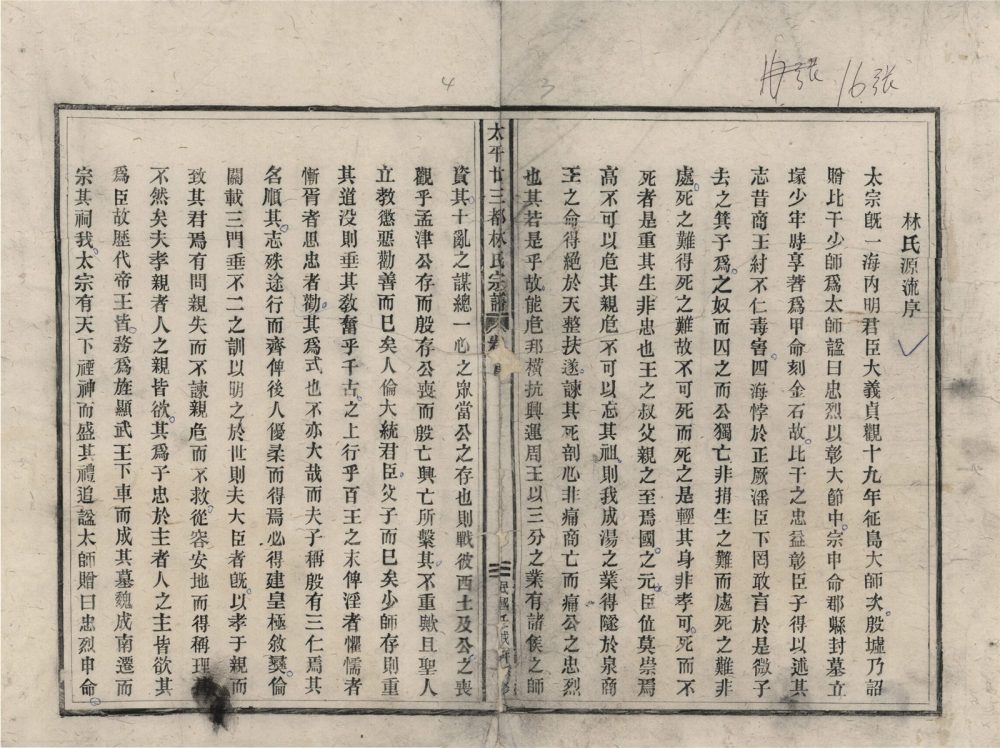 每張 16張
4 3
林氏源流序
太宗旣一海內明君臣大義貞觀十九年征島大師次殷墟乃詔
贈比干少師爲太師謚曰忠烈以彰大節中宗申命郡縣封墓立
塚少牢時享著爲甲命刻金石故比干之忠益彰臣子得以述其
志昔商王紂不仁毒害四海悖於正厥潘臣下罔敢言於是微子
去之箕子爲之奴而囚之而公獨亡非捐生之難而處死之難非
處死之難得死之難故不可死而死之是輕其身非孝可死而不
死者是重其生非忠也王之叔父親之至焉國之元臣位莫崇焉
高不可以危其親危不可以忘其祖則我成湯之業得隧於泉商
王之命得絕於天整扶遂諫其死剖心非痛商亡而痛公之忠烈
也其若是乎故能危邦橫抗興運周王以三分之業有諸侯之師
太平廿三都林氏宗譜 民國
資其十亂之謀總一心之眾當公之存也則戰彼西土及公之喪
觀乎孟津公存而殷存公喪而殷亡興亡所繫其不重歟且聖人
立教懲惡勸善而已矣人倫大統君臣父子而已矣少師存則重
其道没則垂其敎奮乎千古之上行乎百王之末俾淫者懼懦者
慚胥者思忠者勸其爲式也不亦大哉而夫子稱殷有三仁焉其
名順其志殊途行而齊俾後人優柔而得焉必得建皇極敘彝倫
闢載三門垂不二之訓以明之於世則夫大臣者旣以孝于親而
致其君焉有問親失而不諫親危而不救從容安地而得稱理
不然矣夫孝親者人之親皆欲其爲子忠於主者人之主皆欲其
爲臣故歷代帝王皆務爲旌顯武王下車而成其墓魏成南遷而
宗其祠我太宗有天下禋神而盛其禮追謚太師贈曰忠烈申命